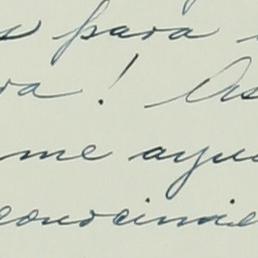 s para
ra! As
me ayu
conocimie